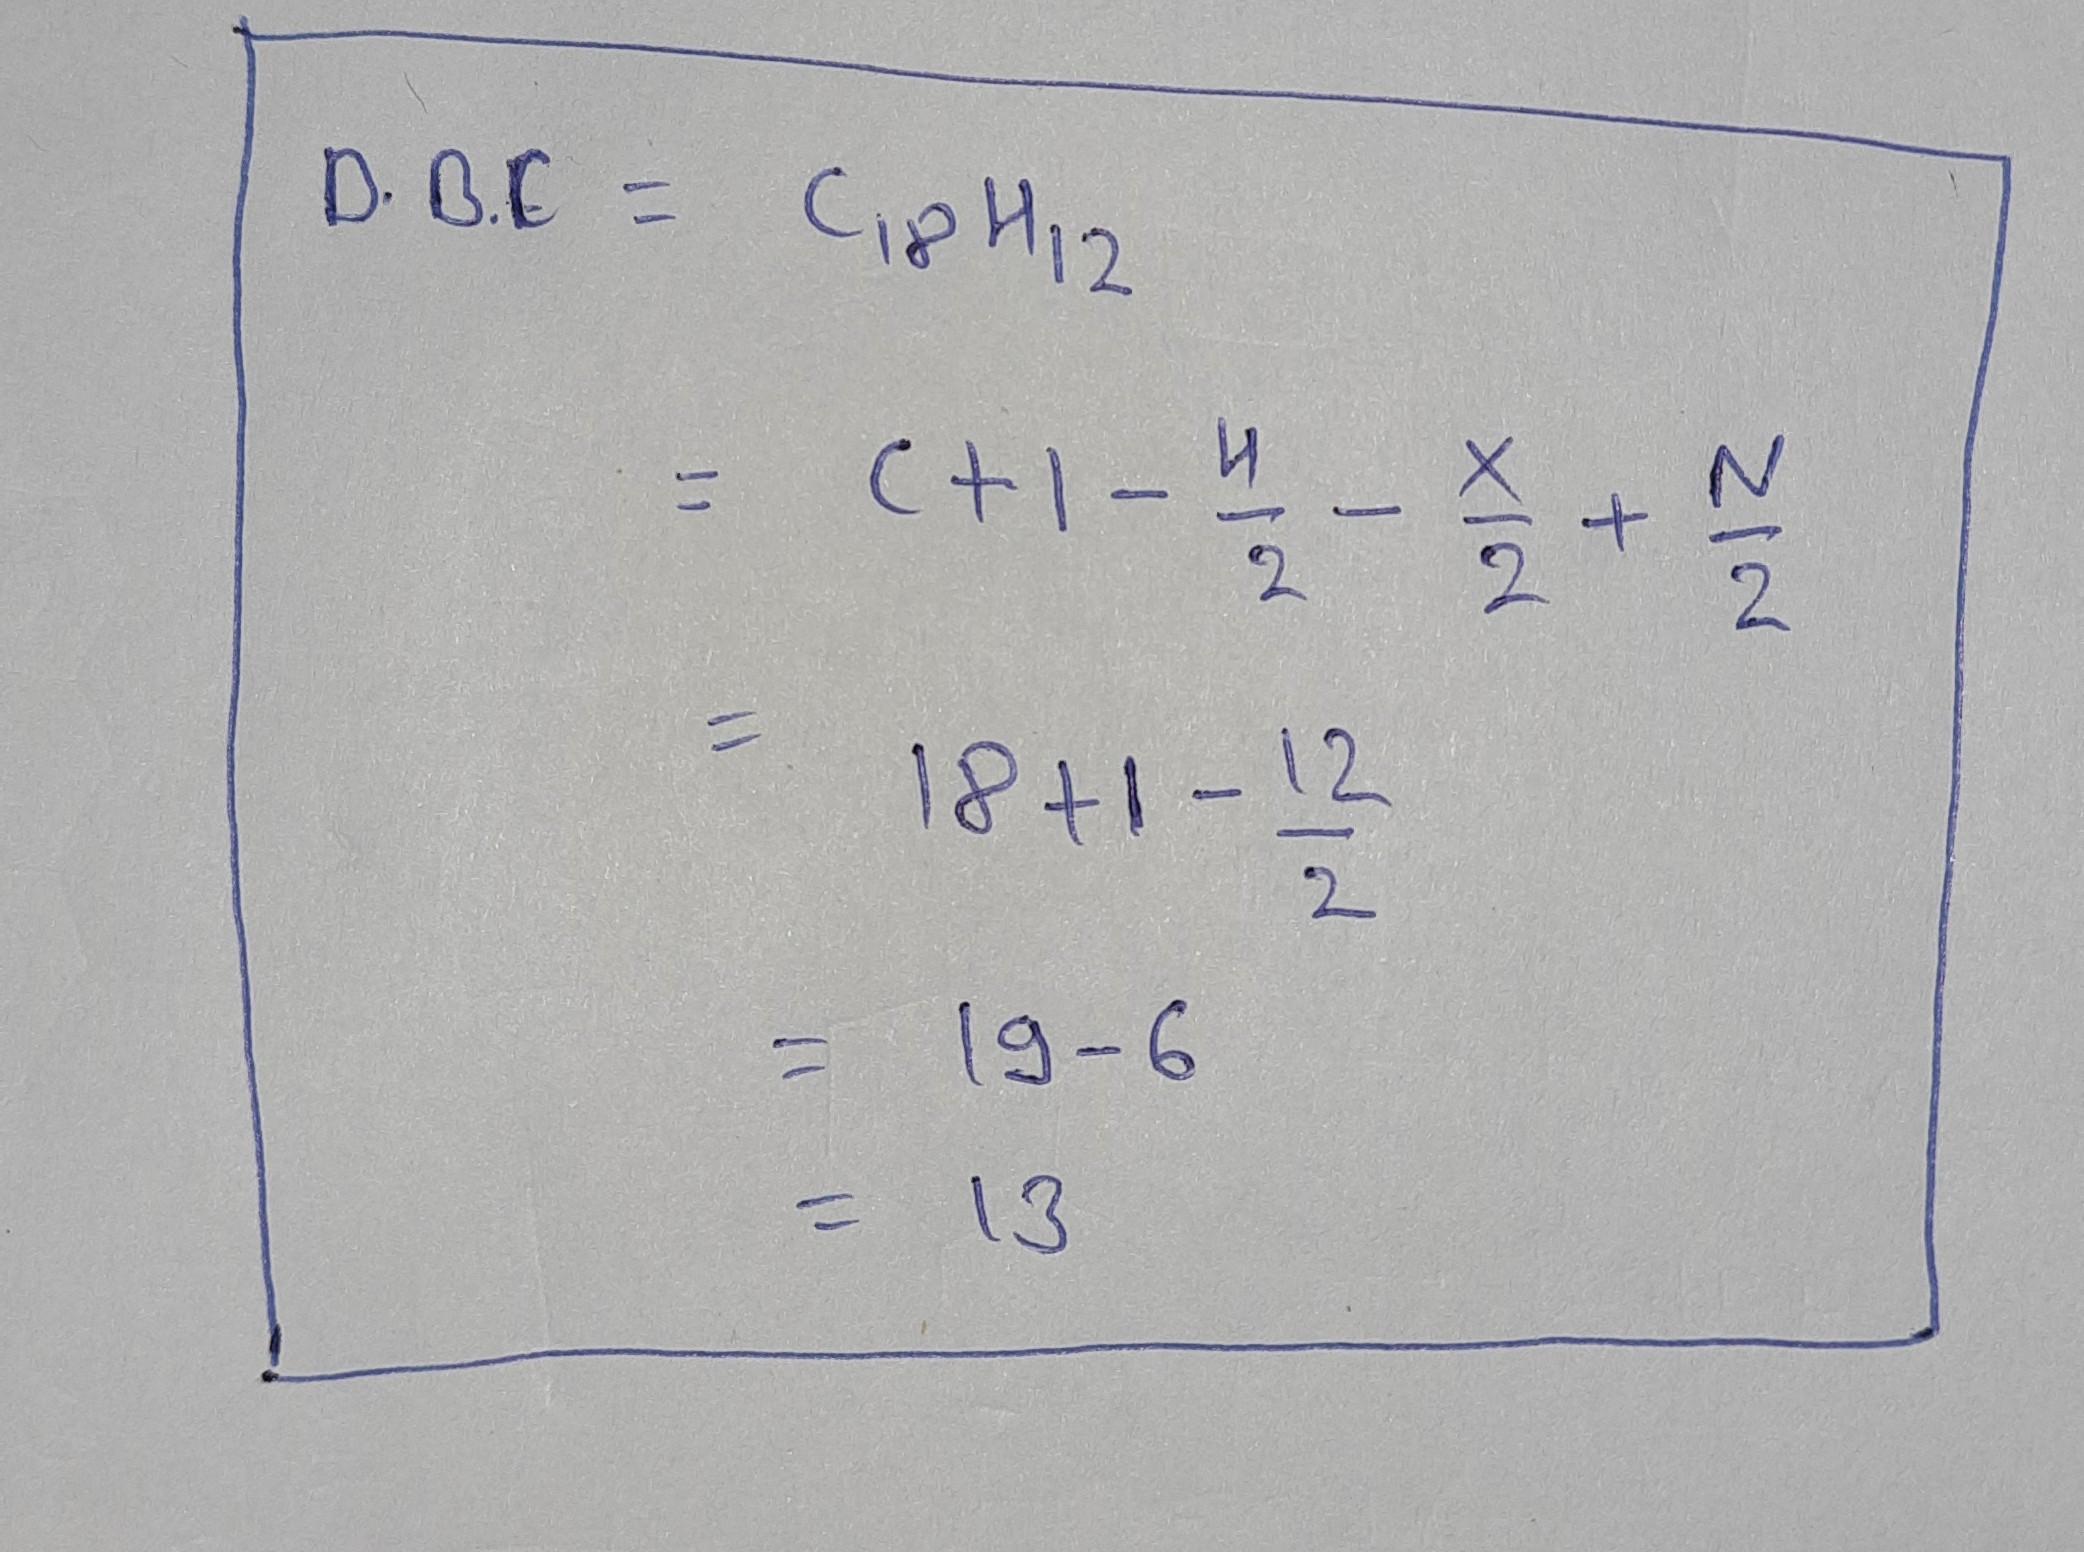 D.B.E = C₁₈H₁₂
= C+1-H/2-X/2+N/2
= 18+1-12/2
= 19-6
= 13